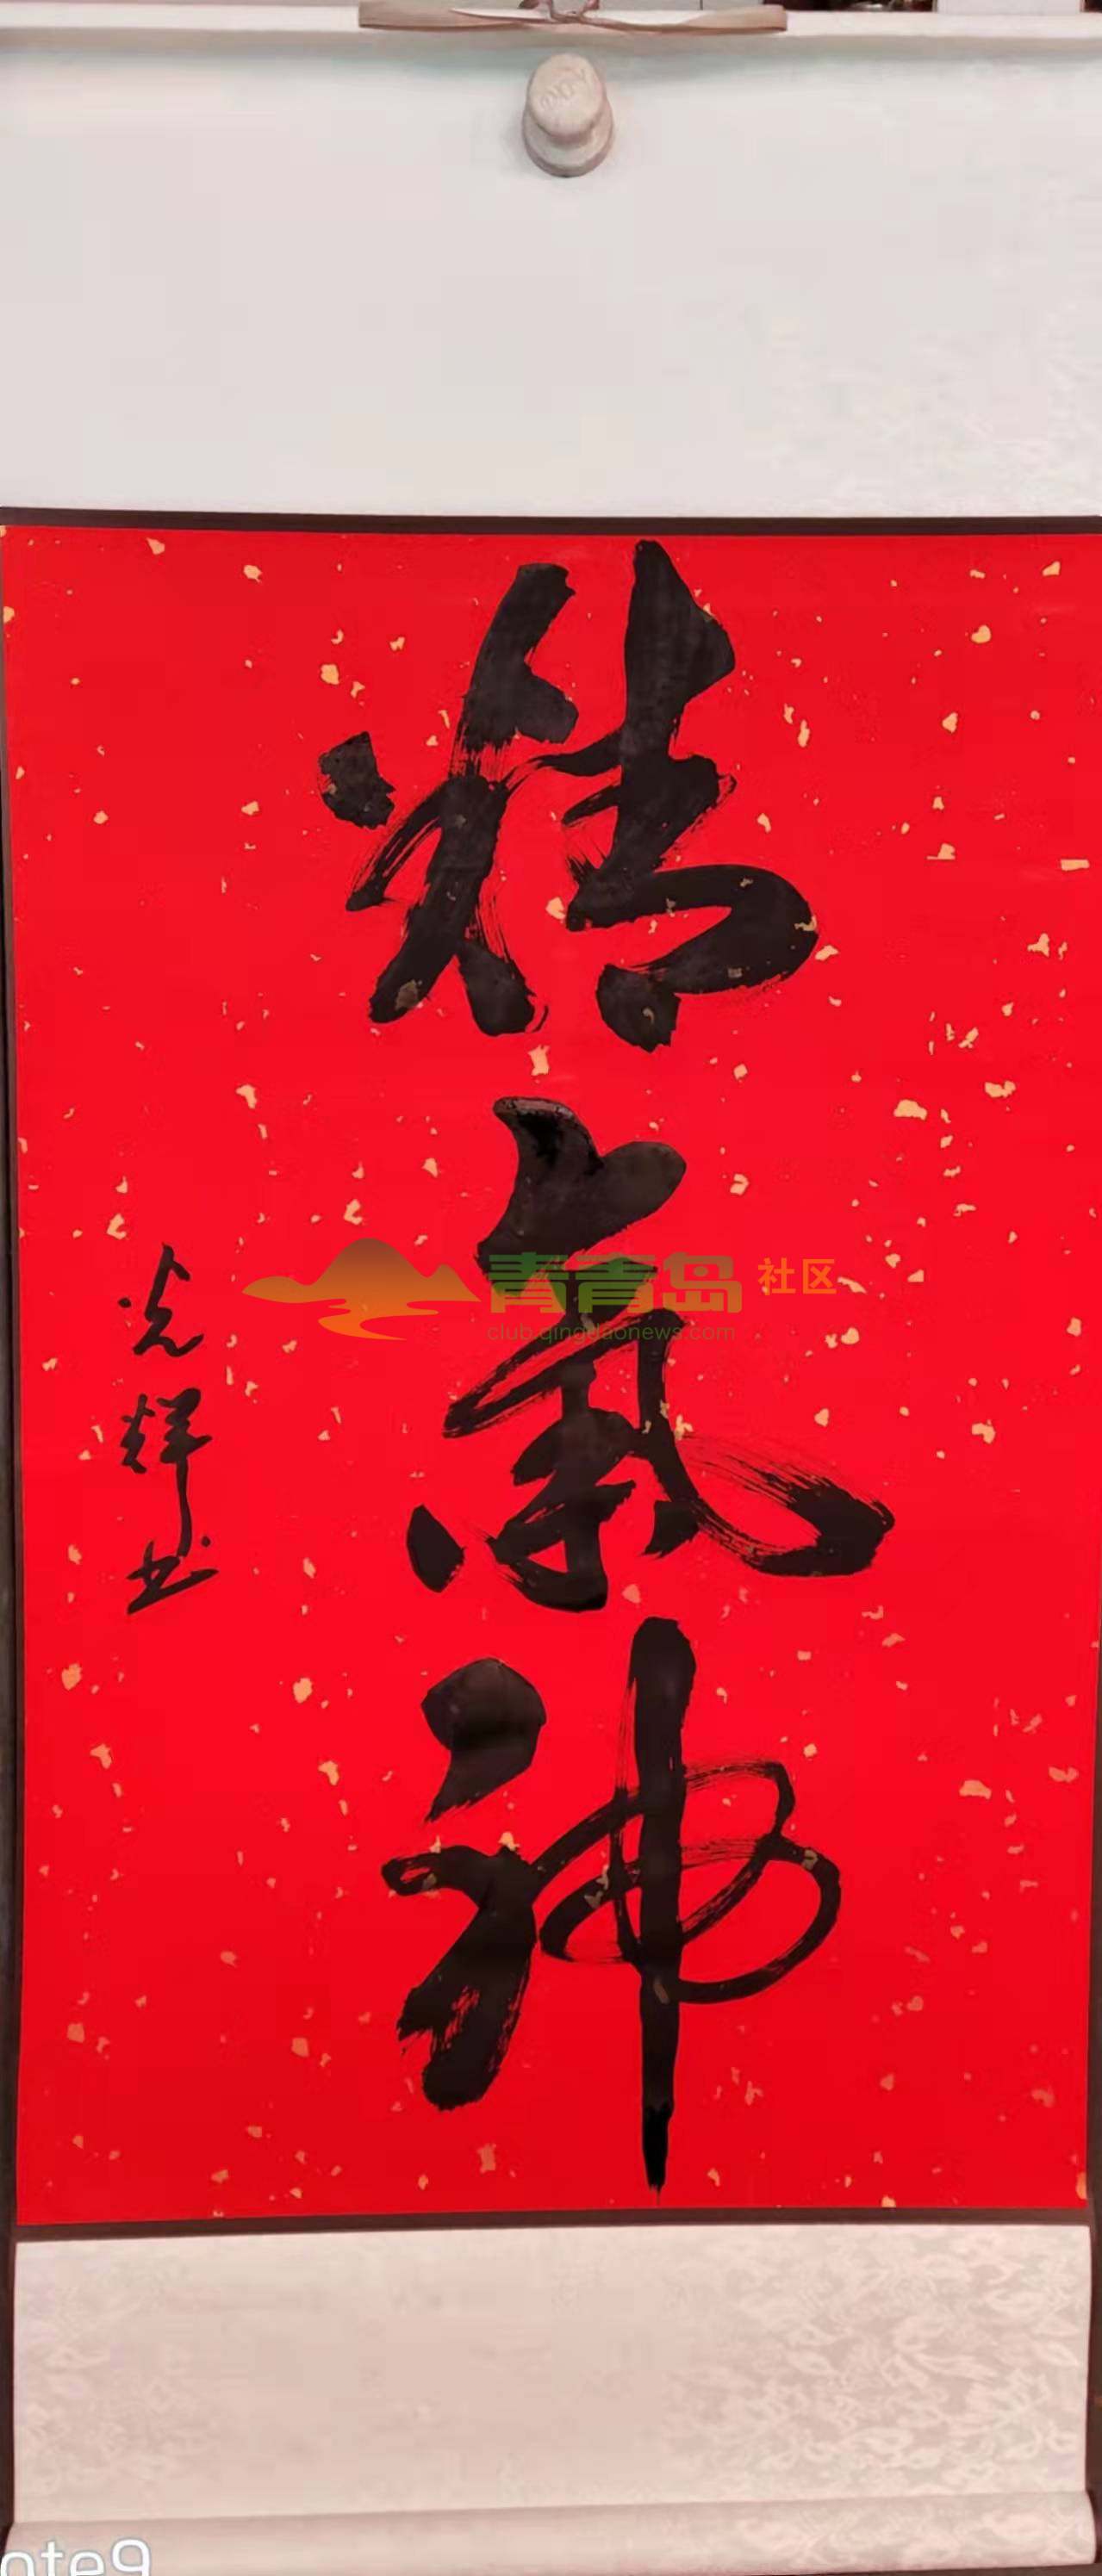 精氣神
光輝书
青青岛 社区
club.qingdaonews.com